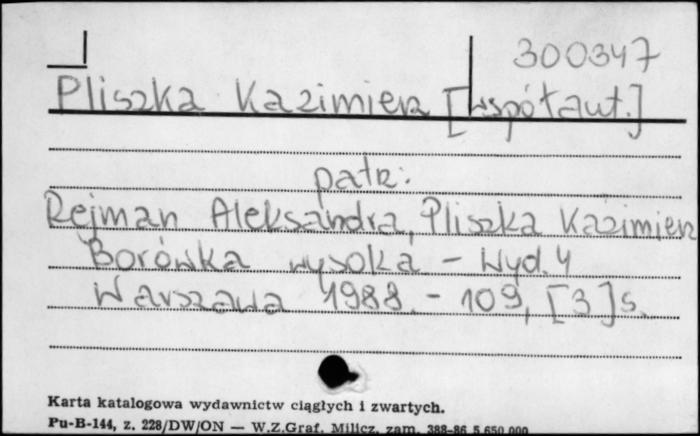 300347
Pliszka Kazimierz [współaut.]
patrz:
Rejman Aleksandra, Pliszka Kazimierz
Borówka wysoka. - Wyd. 4
Warszawa 1988. - 109, [3] s.
Karta katalogowa wydawnictw ciągłych i zwartych.
Pu-B-144, z. 228/DW/ON — W.Z.Graf. Milicz, zam. 388-86 5.650.000